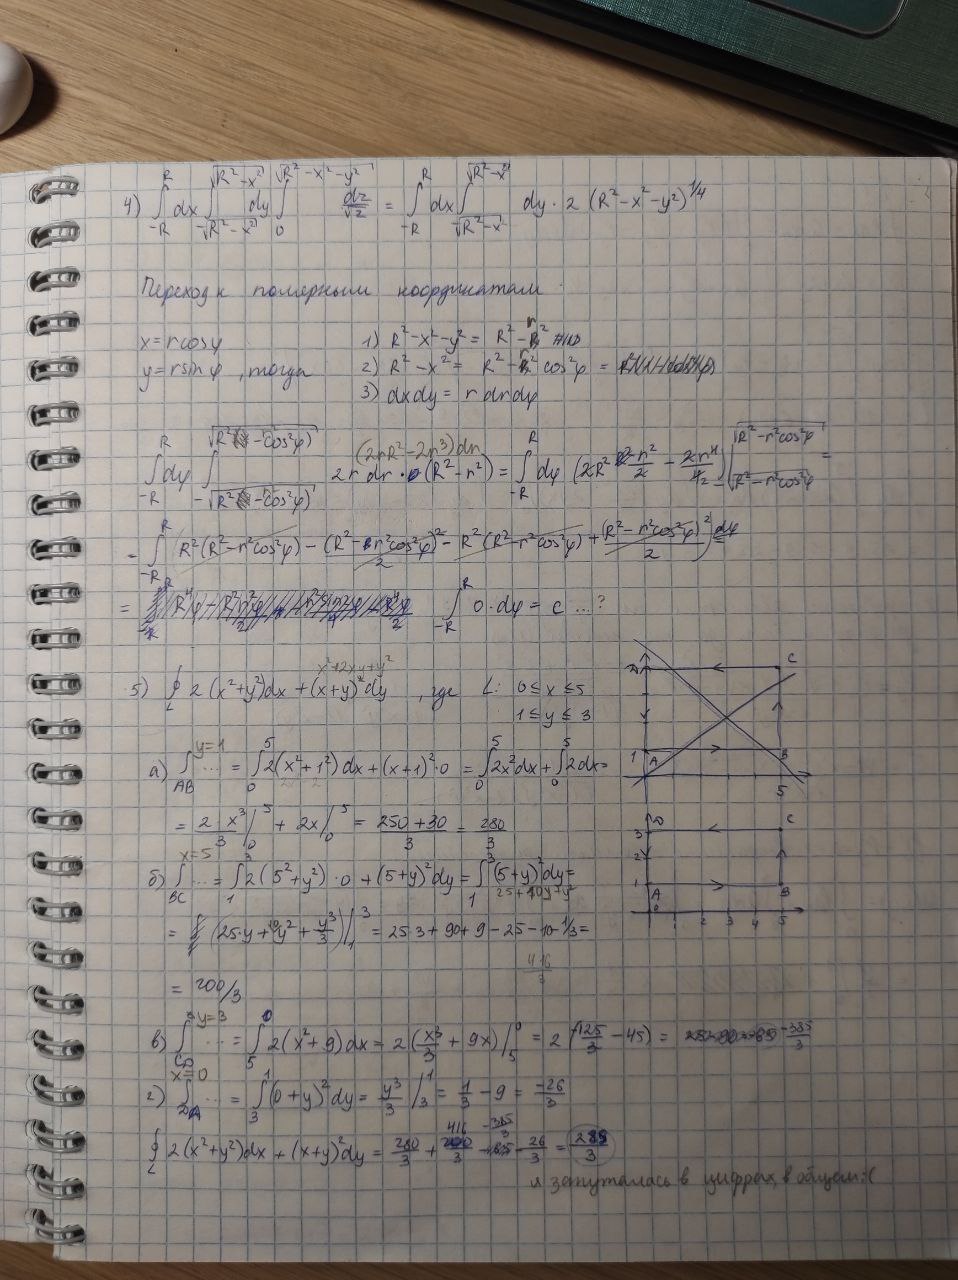 4) ∫_{-R}^{R} dx ∫_{-√(R²-x²)}^{√(R²-x²)} dy ∫_{0}^{√(R²-x²-y²)} dz/√z = ∫_{-R}^{R} dx ∫_{-√(R²-x²)}^{√(R²-x²)} dy · 2 (R²-x²-y²)^{1/4}
Переход к полярным координатам
x = rcosφ 1) R²-x²-y² = R²-r²
y = rsinφ, тогда 2) R²-x² = R²-r²cos²φ =
3) dxdy = r dr dφ
(2rR²-2r³)dr
∫_{-R}^{R} dφ ∫ 2r dr · (R²-r²) = ∫_{-R}^{R} dφ (2R² r²/2 - 2r⁴/4) |_{-√(R²-r²cos²φ)}^{√(R²-r²cos²φ)} =
= ∫_{-R}^{R} (R²(R²-r²cos²φ) - (R²-r²cos²φ)²/2 - R²(R²-r²cos²φ) + (R²-r²cos²φ)²/2) dφ =
= ∫_{-R}^{R} 0·dφ = c ...?
x²+2xy+y²
5) ∮_L 2(x²+y²)dx + (x+y)²dy, где L: 0≤x≤5
1≤y≤3
y=1
а) ∫_{AB} ... = ∫_0^5 2(x²+1²)dx + (x+1)²·0 = ∫_0^5 2x²dx + ∫_0^5 2dx =
= 2x³/3 |_0^5 + 2x |_0^5 = (250+30)/3 = 280/3
x=5
б) ∫_{BC} ... = ∫_1^3 2(5²+y²)·0 + (5+y)²dy = ∫_1^3 (5+y)²dy =
25+10y+y²
= (25·y + y² + y³/3) |_1^3 = 25·3+90+9-25-10-1/3 =
416/3
= 200/3
y=3
в) ∫_{CD} ... = ∫_5^0 2(x²+9)dx = 2(x³/3 + 9x) |_5^0 = 2(-125/3 - 45) = -385/3
x=0
г) ∫_{DA} ... = ∫_3^1 (0+y)²dy = y³/3 |_3^1 = 1/3 - 9 = -26/3
416 -385/3
∮_L 2(x²+y²)dx + (x+y)²dy = 280/3 + 200/3 - 26/3 = 285/3
я запуталась в цифрах, в общем :(
D C
1 A B
5
D C
3
2
1 A B
0 1 2 3 4 5